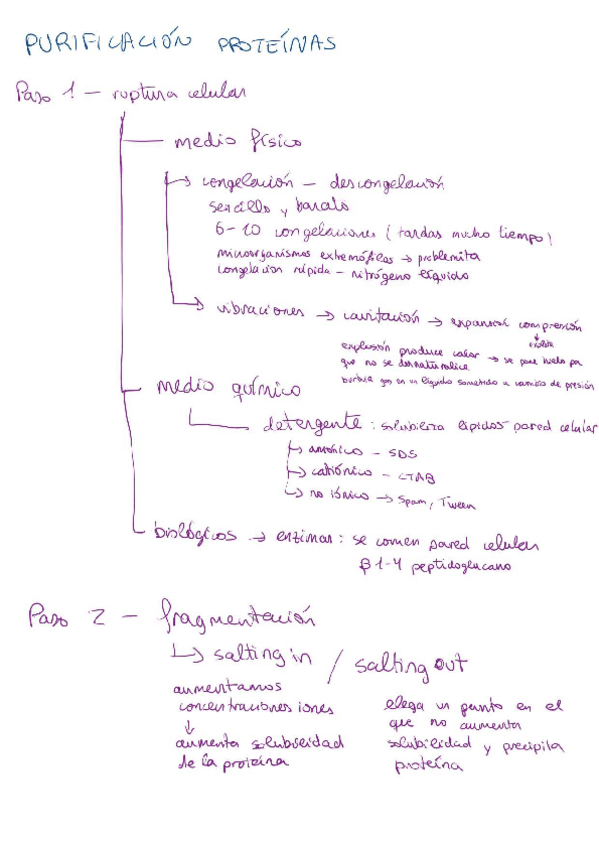 PURIFICACIÓN PROTEÍNAS
Paso 1 – ruptura celular
medio físico
→ congelación – descongelación
sencillo y barato
6-10 congelaciones (tardas mucho tiempo)
microorganismos extremófilos → problemita
congelacion rápida – nitrógeno líquido
→ vibraciones → cavitación → expansion compresión
↓
explota
explosión produce calor → se pone hielo pa
que no se desnaturalice
burbuja gas en un líquido sometido a cambios de presión
medio químico
detergente : solubiliza lípidos pared celular
→ aniónico – SDS
→ catiónico – CTAB
→ no iónico → Spam, Tween
biológicos → enzimas : se comen pared celular
β 1-4 peptidoglucano
Paso 2 – fragmentación
→ salting in / salting out
aumentamos
concentraciones iones
↓
aumenta solubilidad
de la proteína
llega un punto en el
que no aumenta
solubilidad y precipita
proteína